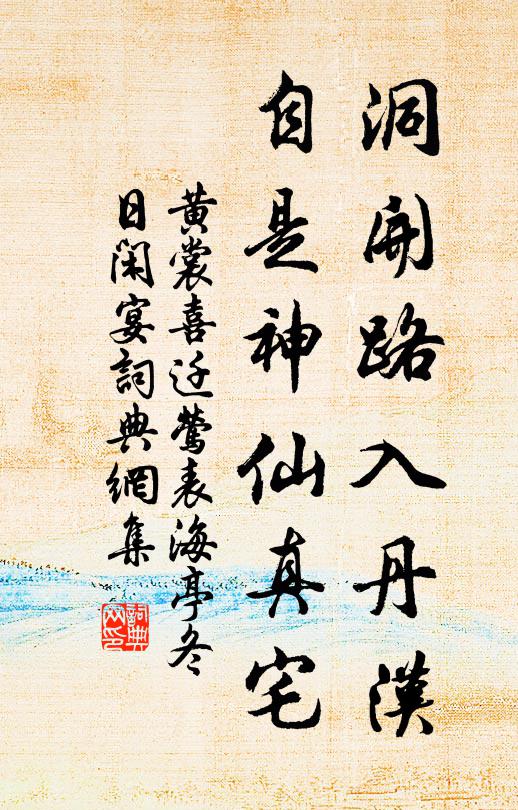 洞開路入丹漢
自是神仙真宅
黃裳喜迁鶯表海亭冬
日閑宴詞典網集
詞典